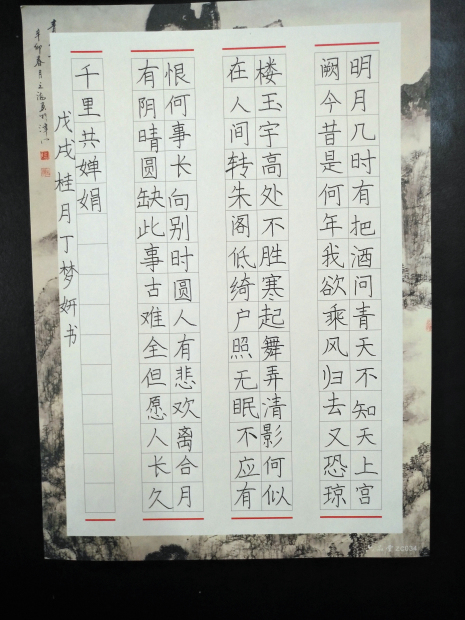 明月几时有把酒问青天不知天上宫
阙今昔是何年我欲乘风归去又恐琼
楼玉宇高处不胜寒起舞弄清影何似
在人间转朱阁低绮户照无眠不应有
恨何事长向别时圆人有悲欢离合月
有阴晴圆缺此事古难全但愿人长久
千里共婵娟
戊戌桂月丁梦妍书